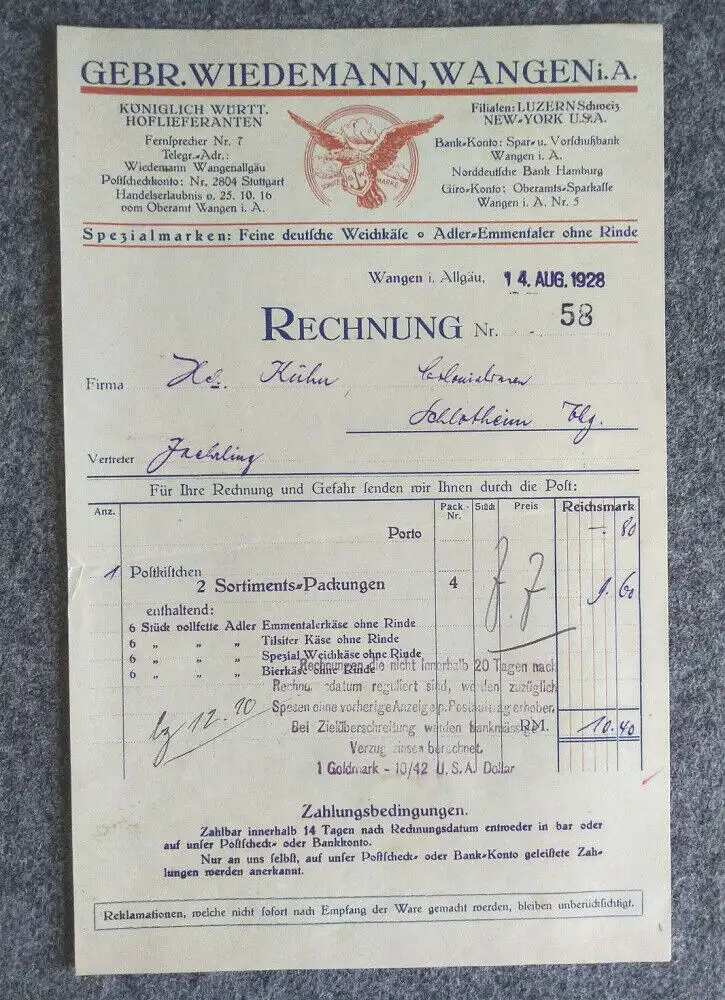 GEBR. WIEDEMANN, WANGEN i. A.
KÖNIGLICH WÜRTT.
HOFLIEFERANTEN
Fernsprecher Nr. 7
Telegr.-Adr.:
Wiedemann Wangenallgäu
Postscheckkonto: Nr. 2804 Stuttgart
Handelserlaubnis v. 25. 10. 16
vom Oberamt Wangen i. A.
G W
SCHUTZ MARKE
Filialen: LUZERN Schweiz
NEW-YORK U.S.A.
Bank-Konto: Spar- u. Vorschußbank
Wangen i. A.
Norddeutsche Bank Hamburg
Giro-Konto: Oberamts-Sparkasse
Wangen i. A. Nr. 5
Spezialmarken: Feine deutsche Weichkäse o Adler-Emmentaler ohne Rinde
Wangen i. Allgäu, 14. AUG. 1928
RECHNUNG Nr. 58
Firma Hch. Kühn Colonialwaren
Schlotheim Thg.
Vertreter Jaehrling
Für Ihre Rechnung und Gefahr senden wir Ihnen durch die Post:
Anz. Pack.-Nr. Stück Preis Reichsmark
Porto —. 80
1 Postkistchen
2 Sortiments-Packungen 4 9. 60
enthaltend:
6 Stück vollfette Adler Emmentalerkäse ohne Rinde
6 „ „ „ Tilsiter Käse ohne Rinde
6 „ „ „ Spezial Weichkäse ohne Rinde
6 „ „ „ Bierkäse ohne Rinde
Rechnungen die nicht innerhalb 20 Tagen nach
Rechnungsdatum reguliert sind, werden zuzüglich
Spesen ohne vorherige Anzeige p. Postauftrag erhoben.
Bei Zielüberschreitung werden bankmässige
Verzugszinsen berechnet.
1 Goldmark - 10/42 U.S.A. Dollar
RM. 10. 40
12.10
Zahlungsbedingungen.
Zahlbar innerhalb 14 Tagen nach Rechnungsdatum entweder in bar oder
auf unser Postscheck- oder Bankkonto.
Nur an uns selbst, auf unser Postscheck- oder Bank-Konto geleistete Zah-
lungen werden anerkannt.
Reklamationen, welche nicht sofort nach Empfang der Ware gemacht werden, bleiben unberücksichtigt.